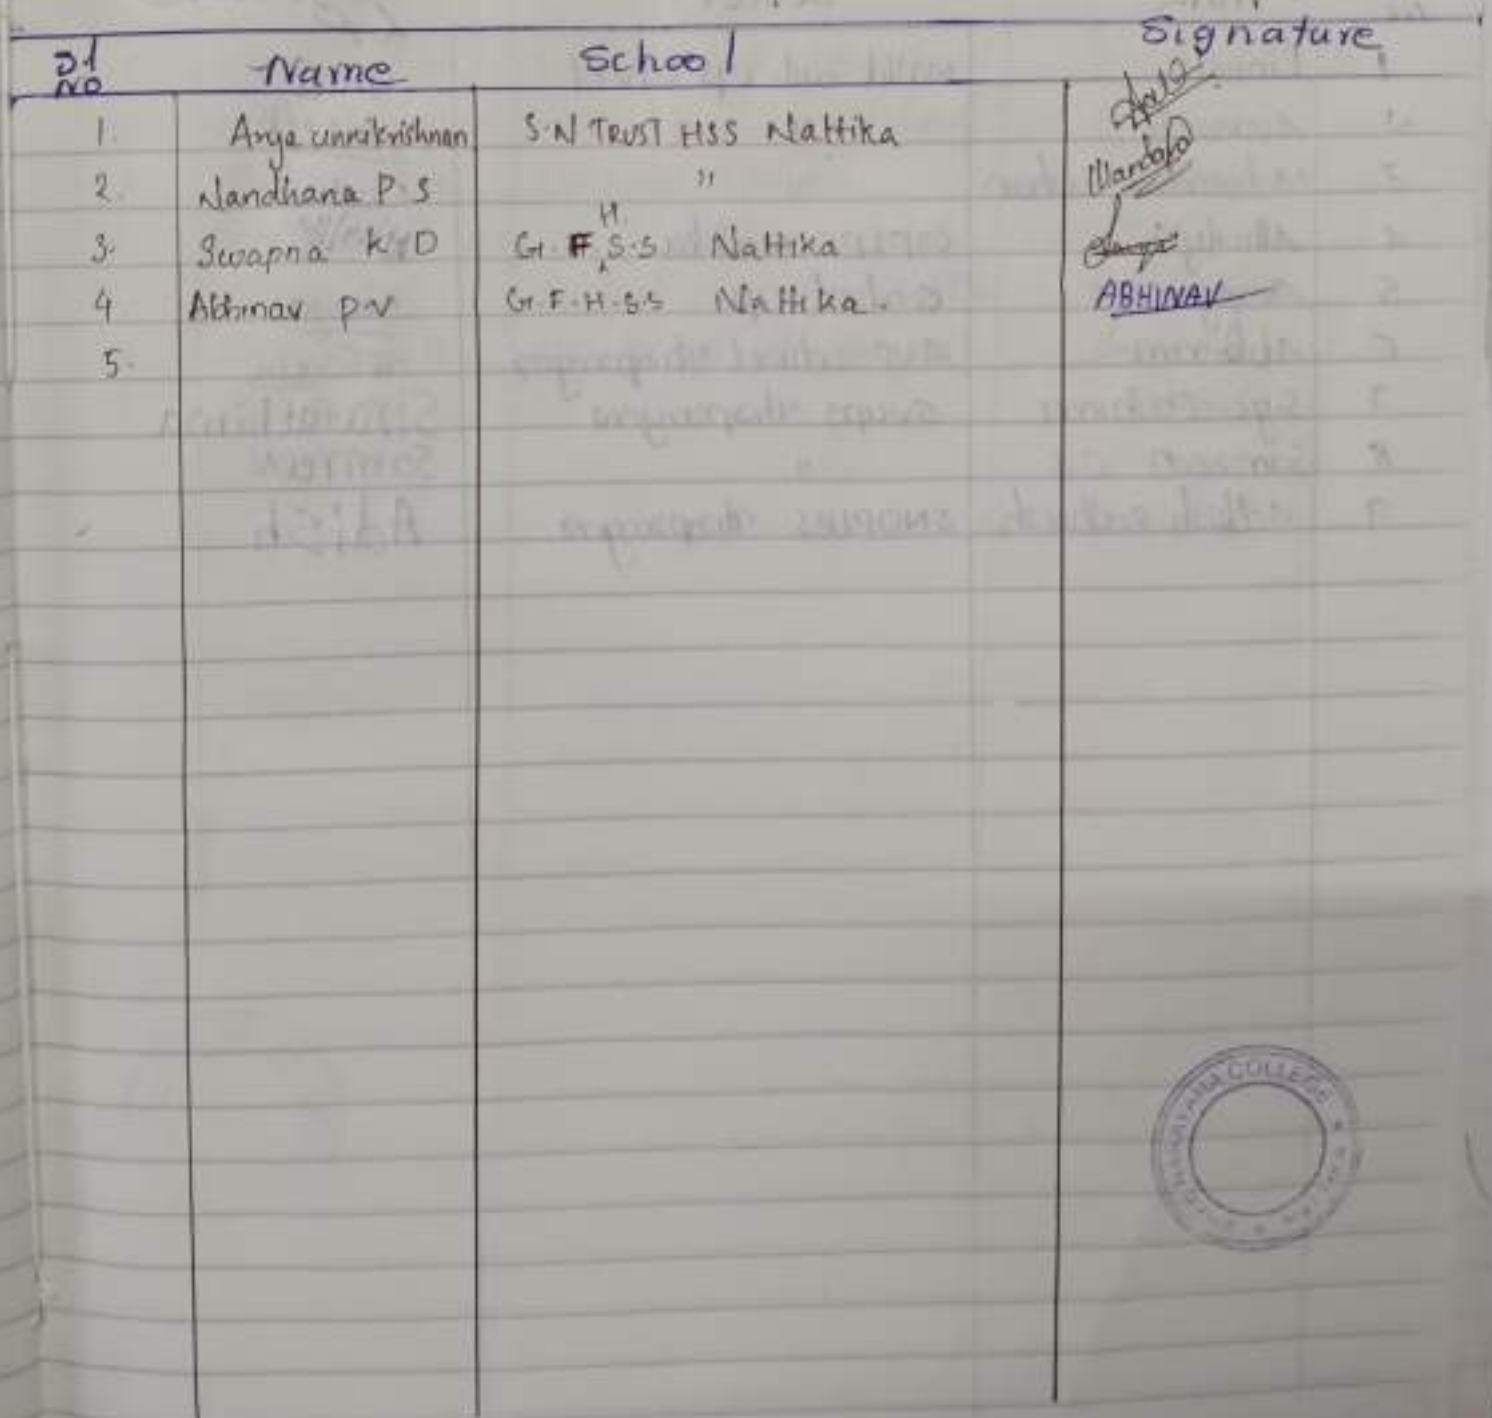 Sl No Name School Signature
1. Arya unnikrishnan S.N TRUST HSS Nattika
2. Nandhana P.S "
3. Swapna K D G.F.H.S.S Nattika
4 Abhinav P.V G.F.H.S.S Nattika. ABHINAV
5.
NARAYANA COLLEGE